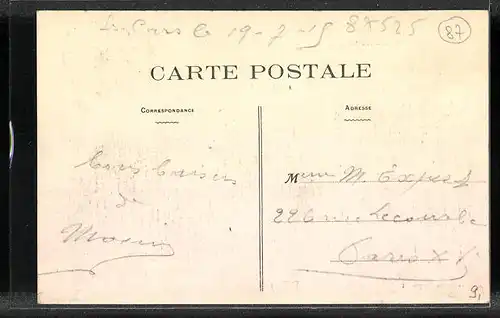 le 19-7-15 87525
87
CARTE POSTALE
CORRESPONDANCE
ADRESSE
Bons baisers
de
Mme M.
226 rue Lecourbe
Paris XV
9,